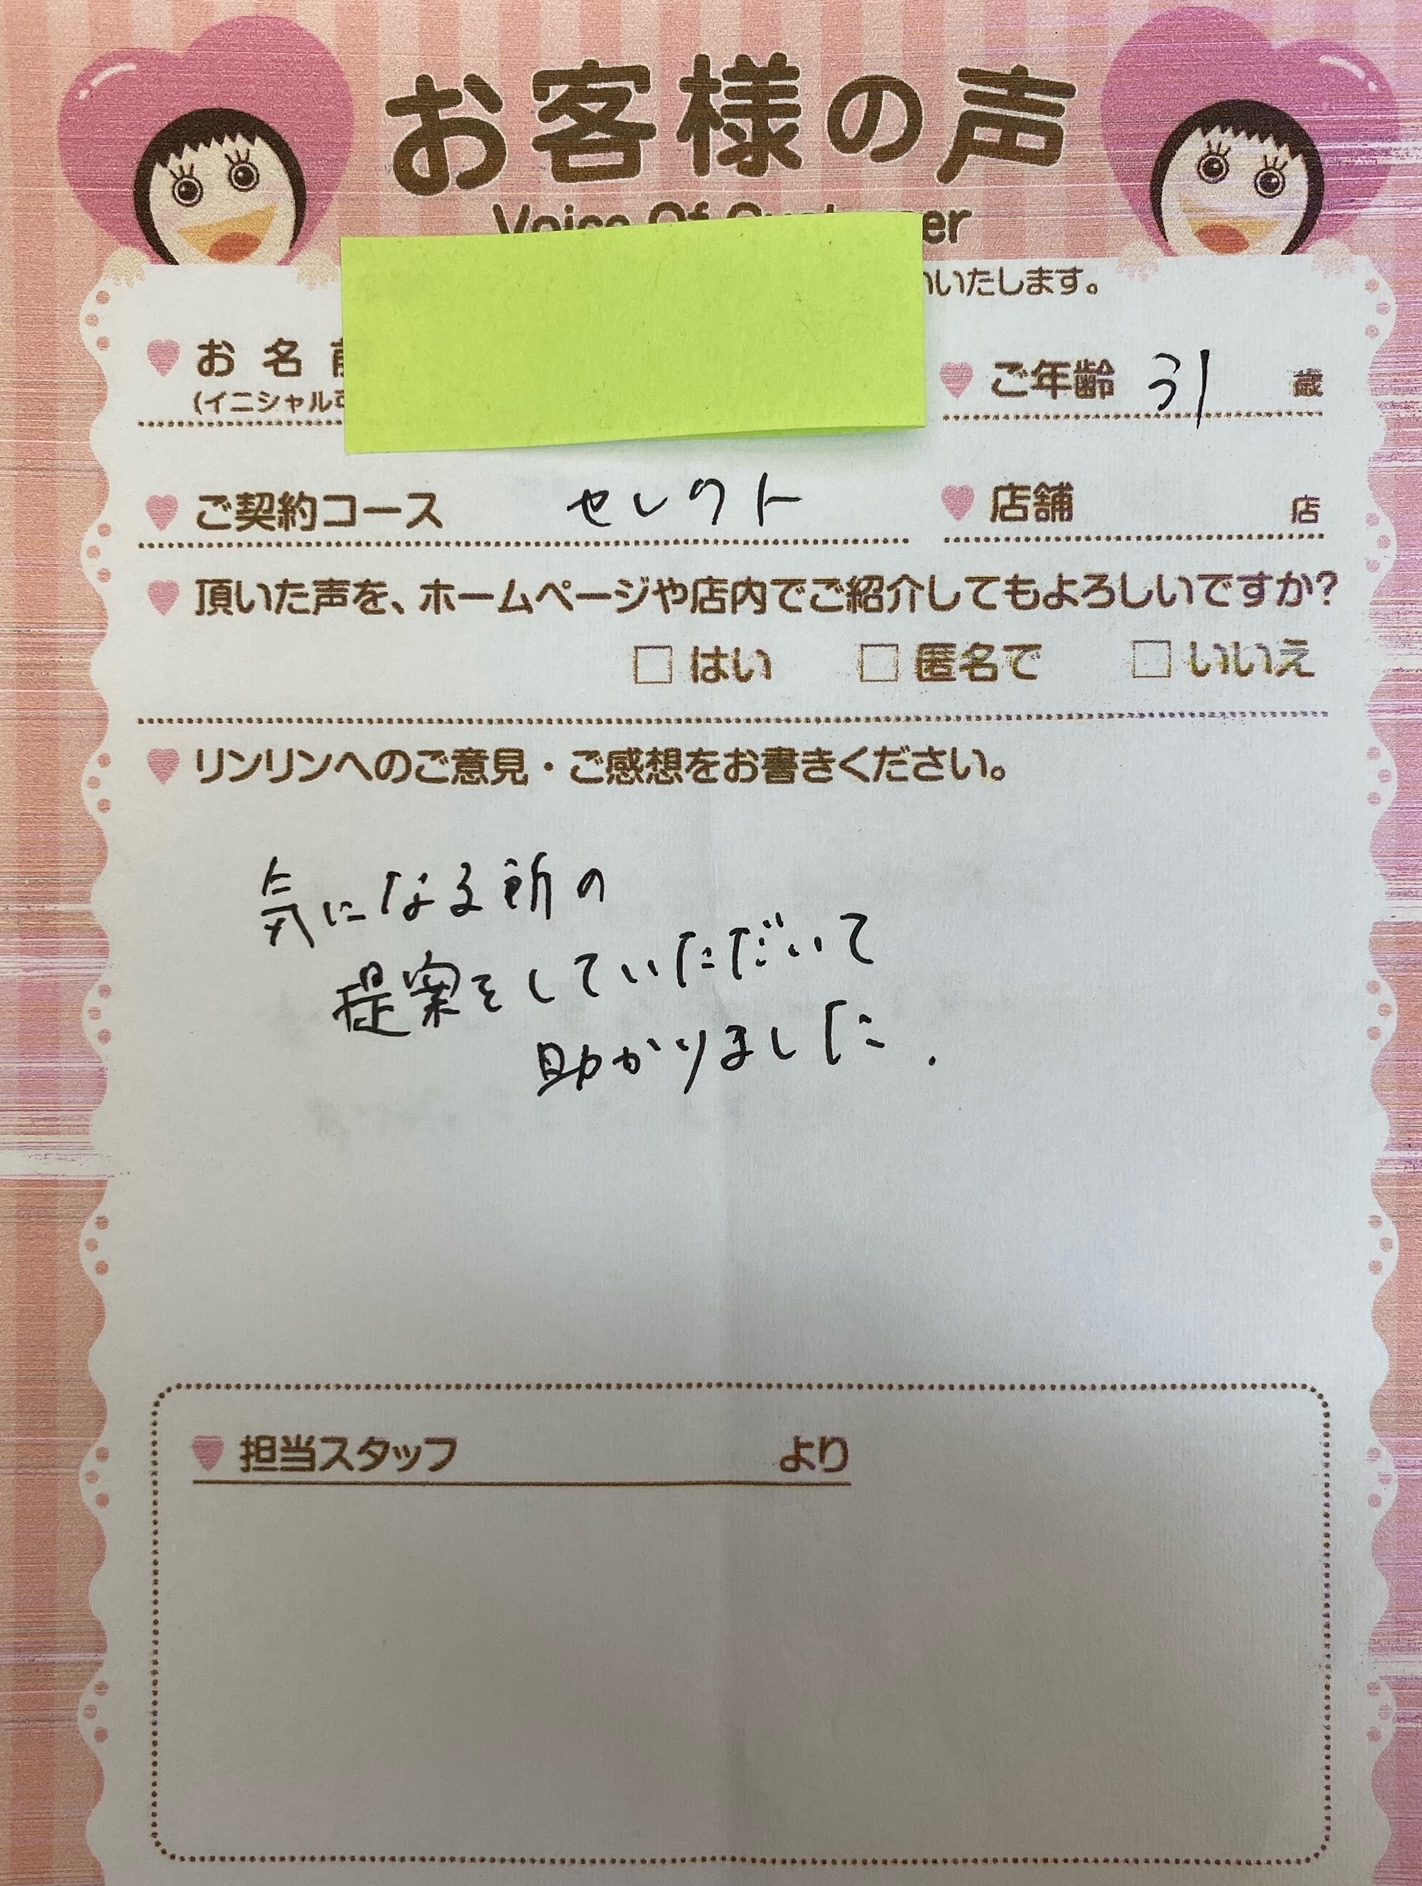 お客様の声
いたします。
お名
(イニシャル
ご年齢 31 歳
ご契約コース セレクト
店舗 店
頂いた声を、ホームページや店内でご紹介してもよろしいですか?
□ はい □ 匿名で □ いいえ
リンリンへのご意見・ご感想をお書きください。
気になる所の
提案をしていただいて
助かりました.
担当スタッフ より